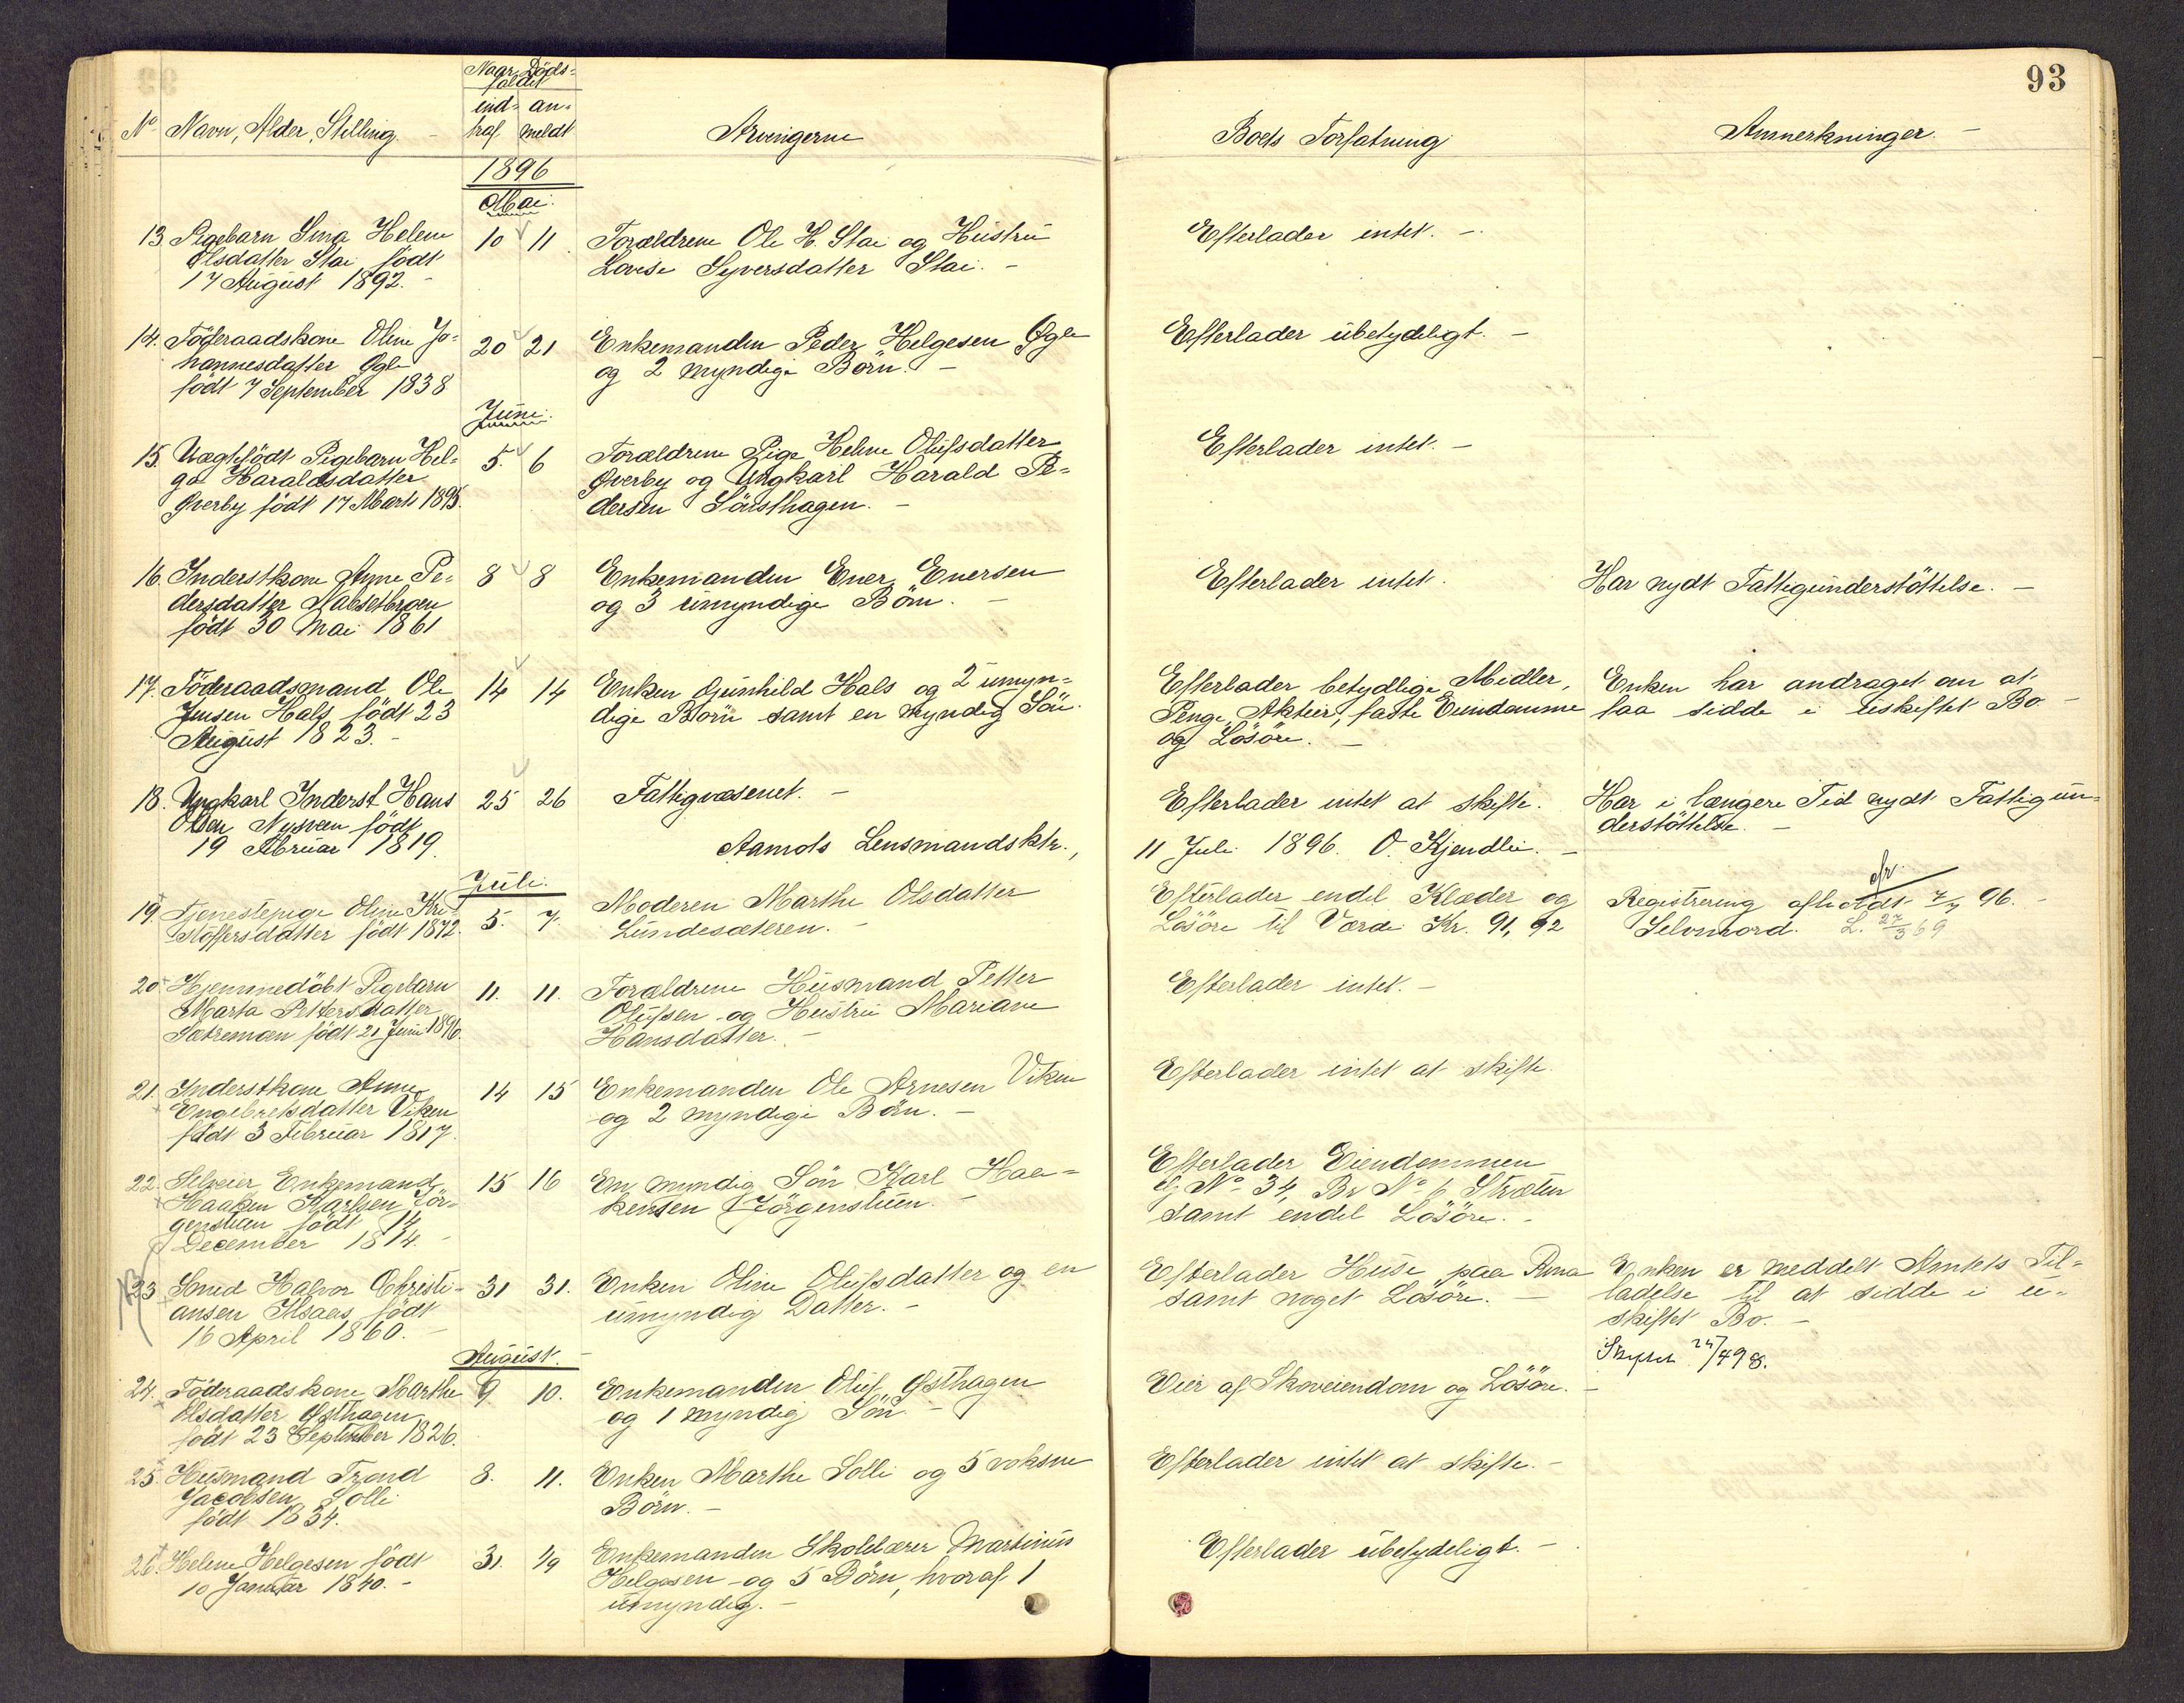 93
Naar Döds-
faldet
ind- an-
traf meldt
No Navn, Alder, Stilling.
Arvingerne
Boets Forfatning
Anmerkninger. -
1896
Mai.
13. Pigebarn Sina Helene
Olsdatter Stai født
17 August 1892. -
10 11
Forældrene Ole H. Stai og Hustru
Lovise Syversdatter Stai. -
Efterlader intet. -
14. Föderaadskone Oline Jo-
hannesdatter Ögle
født 7 September 1838
20 21
Enkemanden Peder Helgesen Øgle
og 2 myndige Börn. -
Efterlader ubetydeligt. -
Juni.
15. Uægtefödt Pigebarn Hel-
ga Haraldsdatter
Øverby født 17 Marts 1895.
5. 6
Forældrene Pige Helene Olufsdatter
Øverby og Ungkarl Harald Pe-
dersen Sörsthagen. -
Efterlader intet. -
16. Inderstkone Anne Pe-
dersdatter Nabsetbroen
født 30 Mai 1861
8 8
Enkemanden Ener Enersen
og 3 umyndige Börn. -
Efterlader intet.
Har nydt Fattigunderstöttelse. -
17. Föderaadsmand Ole
Jensen Hals født 23
August 1823. -
14 14
Enken Gunhild Hals og 2 umyn-
dige Börn samt en myndig Sön.
Efterlader betydlige Midler,
Penge, Aktier, faste Eiendomme
og Lösöre. -
Enken har andraget om at
faa sidde i uskiftet Bo -
18. Ungkarl Inderst Hans
Olsen Nysveen født
19 Februar 1819.
25 26
Fattigvæsenet. -
Efterlader intet at skifte.
Har i længere Tid nydt Fattigun-
derstöttelse. -
Aamots Lensmandsktr., 11 Juli 1896. O. Kjendlie. -
Juli.
19. Tjenestepige Oline Kri-
stoffersdatter født 1872.
5. 7.
Moderen Marthe Olsdatter
Lundesæteren. -
Efterlader endel Klæder og
Lösöre til Værdi Kr. 91,92
Registrering afholdt 7/7 96. -
Selvmord. L. 27/3 69
20 Hjemmedöbt Pigebarn
Marta Pettersdatter
Sætremoen født 21 Juni 1896.
11. 11.
Forældrene Husmand Petter
Olufsen og Hustru Mariane
Hansdatter. -
Efterlader intet. -
21. Inderstkone Anne
Engebretsdatter Viken
født 3 Februar 1817.
14 15
Enkemanden Ole Arnesen Viken
og 2 myndige Börn. -
Efterlader intet at skifte.
22. Selveier Enkemand
Haaken Karlsen Jör-
genstuen født 14
December 1814. -
15 16
En myndig Sön Karl Haa-
kensen Jörgenstuen. -
Efterlader Eiendommen
G No 34, Br No 6 Stræten
samt endel Lösöre. -
23 Smed Halvor Christi-
ansen Ilsaas født
16 April 1860. -
31 31.
Enken Oline Olufsdatter og en
umyndig Datter. -
Efterlader Huse paa Rena
samt noget Lösöre. -
Enken er meddelt Amtets Til-
ladelse til at sidde i u-
skiftet Bo. -
24/4 98.
August. -
24. Föderaadskone Marthe
Olsdatter Østhagen
født 23 September 1826.
9 10.
Enkemanden Oluf Østhagen
og 1 myndig Sön -
Eier af Skoveiendom og Lösöre. -
25. Husmand Trond
Jacobsen Solli
født 1834.
8. 11.
Enken Marthe Solli og 5 voksne
Börn. -
Efterlader intet at skifte. -
26. Helene Helgesen født
10 Januar 1840. -
31. 1/9
Enkemanden Skolelærer Martinus
Helgesen og 5 Börn, hvoraf 1
umyndig. -
Efterlader ubetydeligt. -